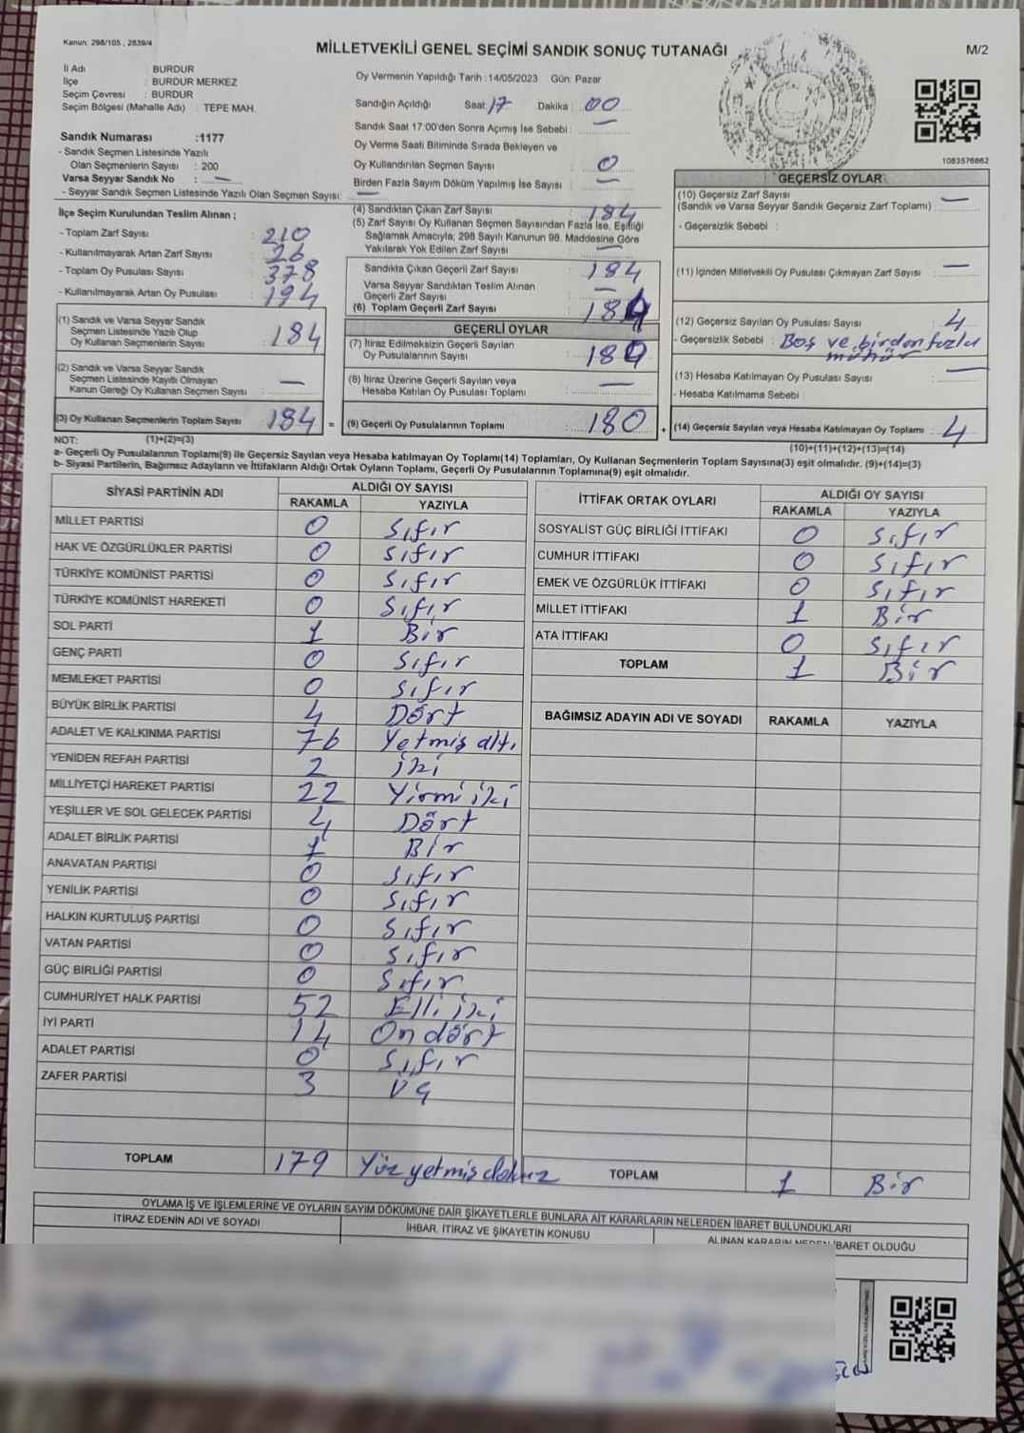 Kanun: 298/105 , 2839/4
MİLLETVEKİLİ GENEL SEÇİMİ SANDIK SONUÇ TUTANAĞI
M/2
İl Adı : BURDUR
İlçe : BURDUR MERKEZ
Seçim Çevresi : BURDUR
Seçim Bölgesi (Mahalle Adı) : TEPE MAH.
Sandık Numarası :1177
- Sandık Seçmen Listesinde Yazılı
Olan Seçmenlerin Sayısı : 200
Varsa Seyyar Sandık No : —
- Seyyar Sandık Seçmen Listesinde Yazılı Olan Seçmen Sayısı: —
Oy Vermenin Yapıldığı Tarih :14/05/2023 Gün: Pazar
Sandığın Açıldığı Saat: 17 Dakika : 00
Sandık Saat 17:00'den Sonra Açımış İse Sebebi : —
Oy Verme Saati Bitiminde Sırada Bekleyen ve
Oy Kullandırılan Seçmen Sayısı : 0
Birden Fazla Sayım Döküm Yapılmış İse Sayısı : —
1083576862
İlçe Seçim Kurulundan Teslim Alınan ;
- Toplam Zarf Sayısı : 210
- Kullanılmayarak Artan Zarf Sayısı : 26
- Toplam Oy Pusulası Sayısı : 378
- Kullanılmayarak Artan Oy Pusulası : 194
(1) Sandık ve Varsa Seyyar Sandık
Seçmen Listesinde Yazılı Olup
Oy Kullanan Seçmenlerin Sayısı : 184
(2) Sandık ve Varsa Seyyar Sandık
Seçmen Listesinde Kayıtlı Olmayan
Kanun Gereği Oy Kullanan Seçmen Sayısı : —
(3) Oy Kullanan Seçmenlerin Toplam Sayısı : 184 =
(4) Sandıktan Çıkan Zarf Sayısı : 184
(5) Zarf Sayısı Oy Kullanan Seçmen Sayısından Fazla İse, Eşitliği
Sağlamak Amacıyla, 298 Sayılı Kanunun 98. Maddesine Göre
Yakılarak Yok Edilen Zarf Sayısı : —
Sandıkta Çıkan Geçerli Zarf Sayısı : 184
Varsa Seyyar Sandıktan Teslim Alınan
Geçerli Zarf Sayısı : —
(6) Toplam Geçerli Zarf Sayısı : 184
GEÇERLİ OYLAR
(7) İtiraz Edilmeksizin Geçerli Sayılan
Oy Pusulalarının Sayısı : 180
(8) İtiraz Üzerine Geçerli Sayılan veya
Hesaba Katılan Oy Pusulası Toplamı : —
(9) Geçerli Oy Pusulalarının Toplamı : 180 +
GEÇERSİZ OYLAR
(10) Geçersiz Zarf Sayısı : —
(Sandık ve Varsa Seyyar Sandık Geçersiz Zarf Toplamı)
- Geçersizlik Sebebi :
(11) İçinden Milletvekili Oy Pusulası Çıkmayan Zarf Sayısı : —
(12) Geçersiz Sayılan Oy Pusulası Sayısı : 4
- Geçersizlik Sebebi : Boş ve birden fazla
mühür
(13) Hesaba Katılmayan Oy Pusulası Sayısı : —
- Hesaba Katılmama Sebebi :
(14) Geçersiz Sayılan veya Hesaba Katılmayan Oy Toplamı : 4
NOT: (1)+(2)=(3)
(10)+(11)+(12)+(13)=(14)
a- Geçerli Oy Pusulalarının Toplamı(9) ile Geçersiz Sayılan veya Hesaba katılmayan Oy Toplamı(14) Toplamları, Oy Kullanan Seçmenlerin Toplam Sayısına(3) eşit olmalıdır. (9)+(14)=(3)
b- Siyasi Partilerin, Bağımsız Adayların ve İttifakların Aldığı Ortak Oyların Toplamı, Geçerli Oy Pusulalarının Toplamına(9) eşit olmalıdır.
SİYASİ PARTİNİN ADI ALDIĞI OY SAYISI
RAKAMLA YAZIYLA
MİLLET PARTİSİ 0 Sıfır
HAK VE ÖZGÜRLÜKLER PARTİSİ 0 Sıfır
TÜRKİYE KOMÜNİST PARTİSİ 0 Sıfır
TÜRKİYE KOMÜNİST HAREKETİ 0 Sıfır
SOL PARTİ 1 Bir
GENÇ PARTİ 0 Sıfır
MEMLEKET PARTİSİ 0 Sıfır
BÜYÜK BİRLİK PARTİSİ 4 Dört
ADALET VE KALKINMA PARTİSİ 76 Yetmiş altı
YENİDEN REFAH PARTİSİ 2 iki
MİLLİYETÇİ HAREKET PARTİSİ 22 Yirmi iki
YEŞİLLER VE SOL GELECEK PARTİSİ 4 Dört
ADALET BİRLİK PARTİSİ 1 Bir
ANAVATAN PARTİSİ 0 Sıfır
YENİLİK PARTİSİ 0 Sıfır
HALKIN KURTULUŞ PARTİSİ 0 Sıfır
VATAN PARTİSİ 0 Sıfır
GÜÇ BİRLİĞİ PARTİSİ 0 Sıfır
CUMHURİYET HALK PARTİSİ 52 Elli iki
İYİ PARTİ 14 On dört
ADALET PARTİSİ 0 Sıfır
ZAFER PARTİSİ 3 Üç
TOPLAM 179 Yüz yetmiş dokuz
İTTİFAK ORTAK OYLARI ALDIĞI OY SAYISI
RAKAMLA YAZIYLA
SOSYALİST GÜÇ BİRLİĞİ İTTİFAKI 0 Sıfır
CUMHUR İTTİFAKI 0 Sıfır
EMEK VE ÖZGÜRLÜK İTTİFAKI 0 Sıfır
MİLLET İTTİFAKI 1 Bir
ATA İTTİFAKI 0 Sıfır
TOPLAM 1 Bir
BAĞIMSIZ ADAYIN ADI VE SOYADI RAKAMLA YAZIYLA
TOPLAM 1 Bir
OYLAMA İŞ VE İŞLEMLERİNE VE OYLARIN SAYIM DÖKÜMÜNE DAİR ŞİKAYETLERLE BUNLARA AİT KARARLARIN NELERDEN İBARET BULUNDUKLARI
İTİRAZ EDENİN ADI VE SOYADI İHBAR, İTİRAZ VE ŞİKAYETİN KONUSU ALINAN KARARIN NEDEN İBARET OLDUĞU